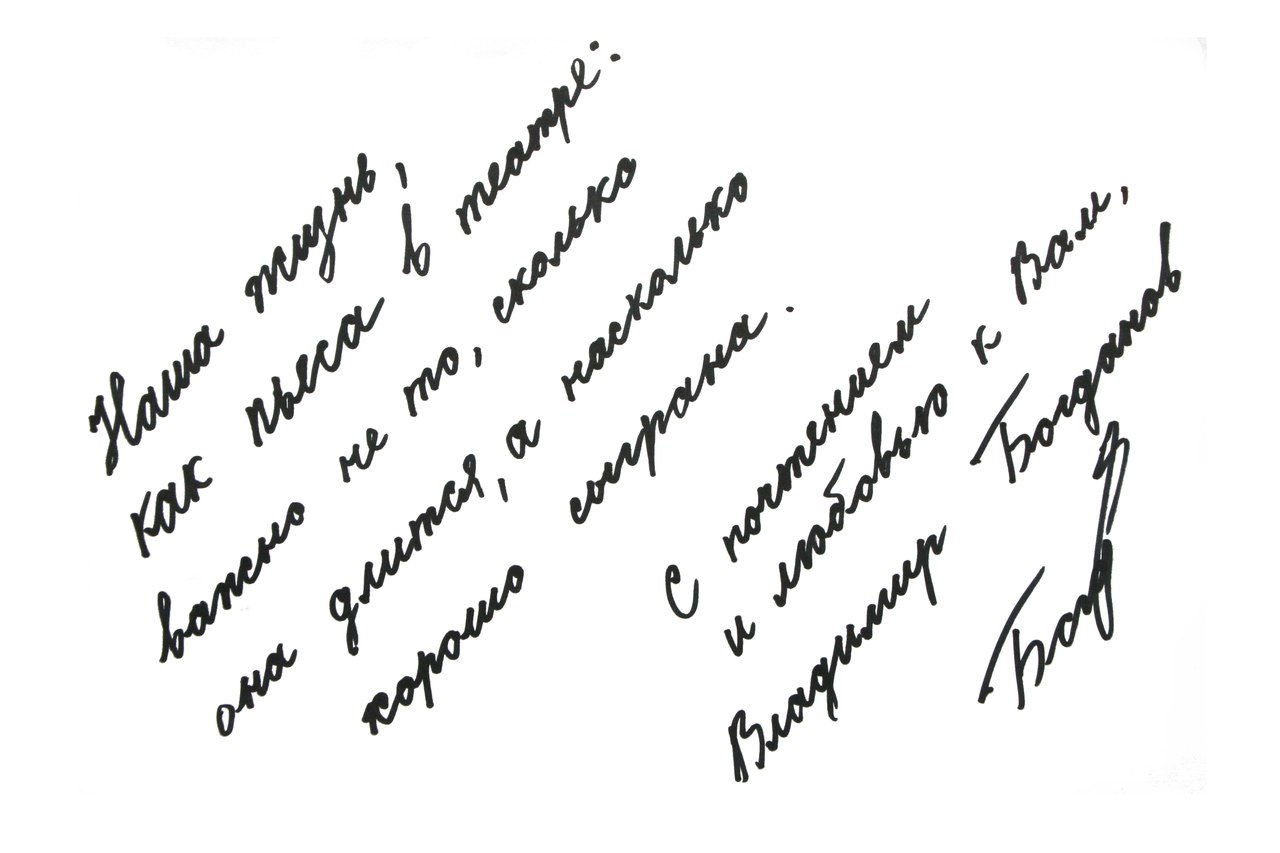 Наша жизнь,
как пьеса в театре:
важно не то, сколько
она длится, а насколько
хорошо сыграна.
С почтением
и любовью к Вам,
Владимир Богданов